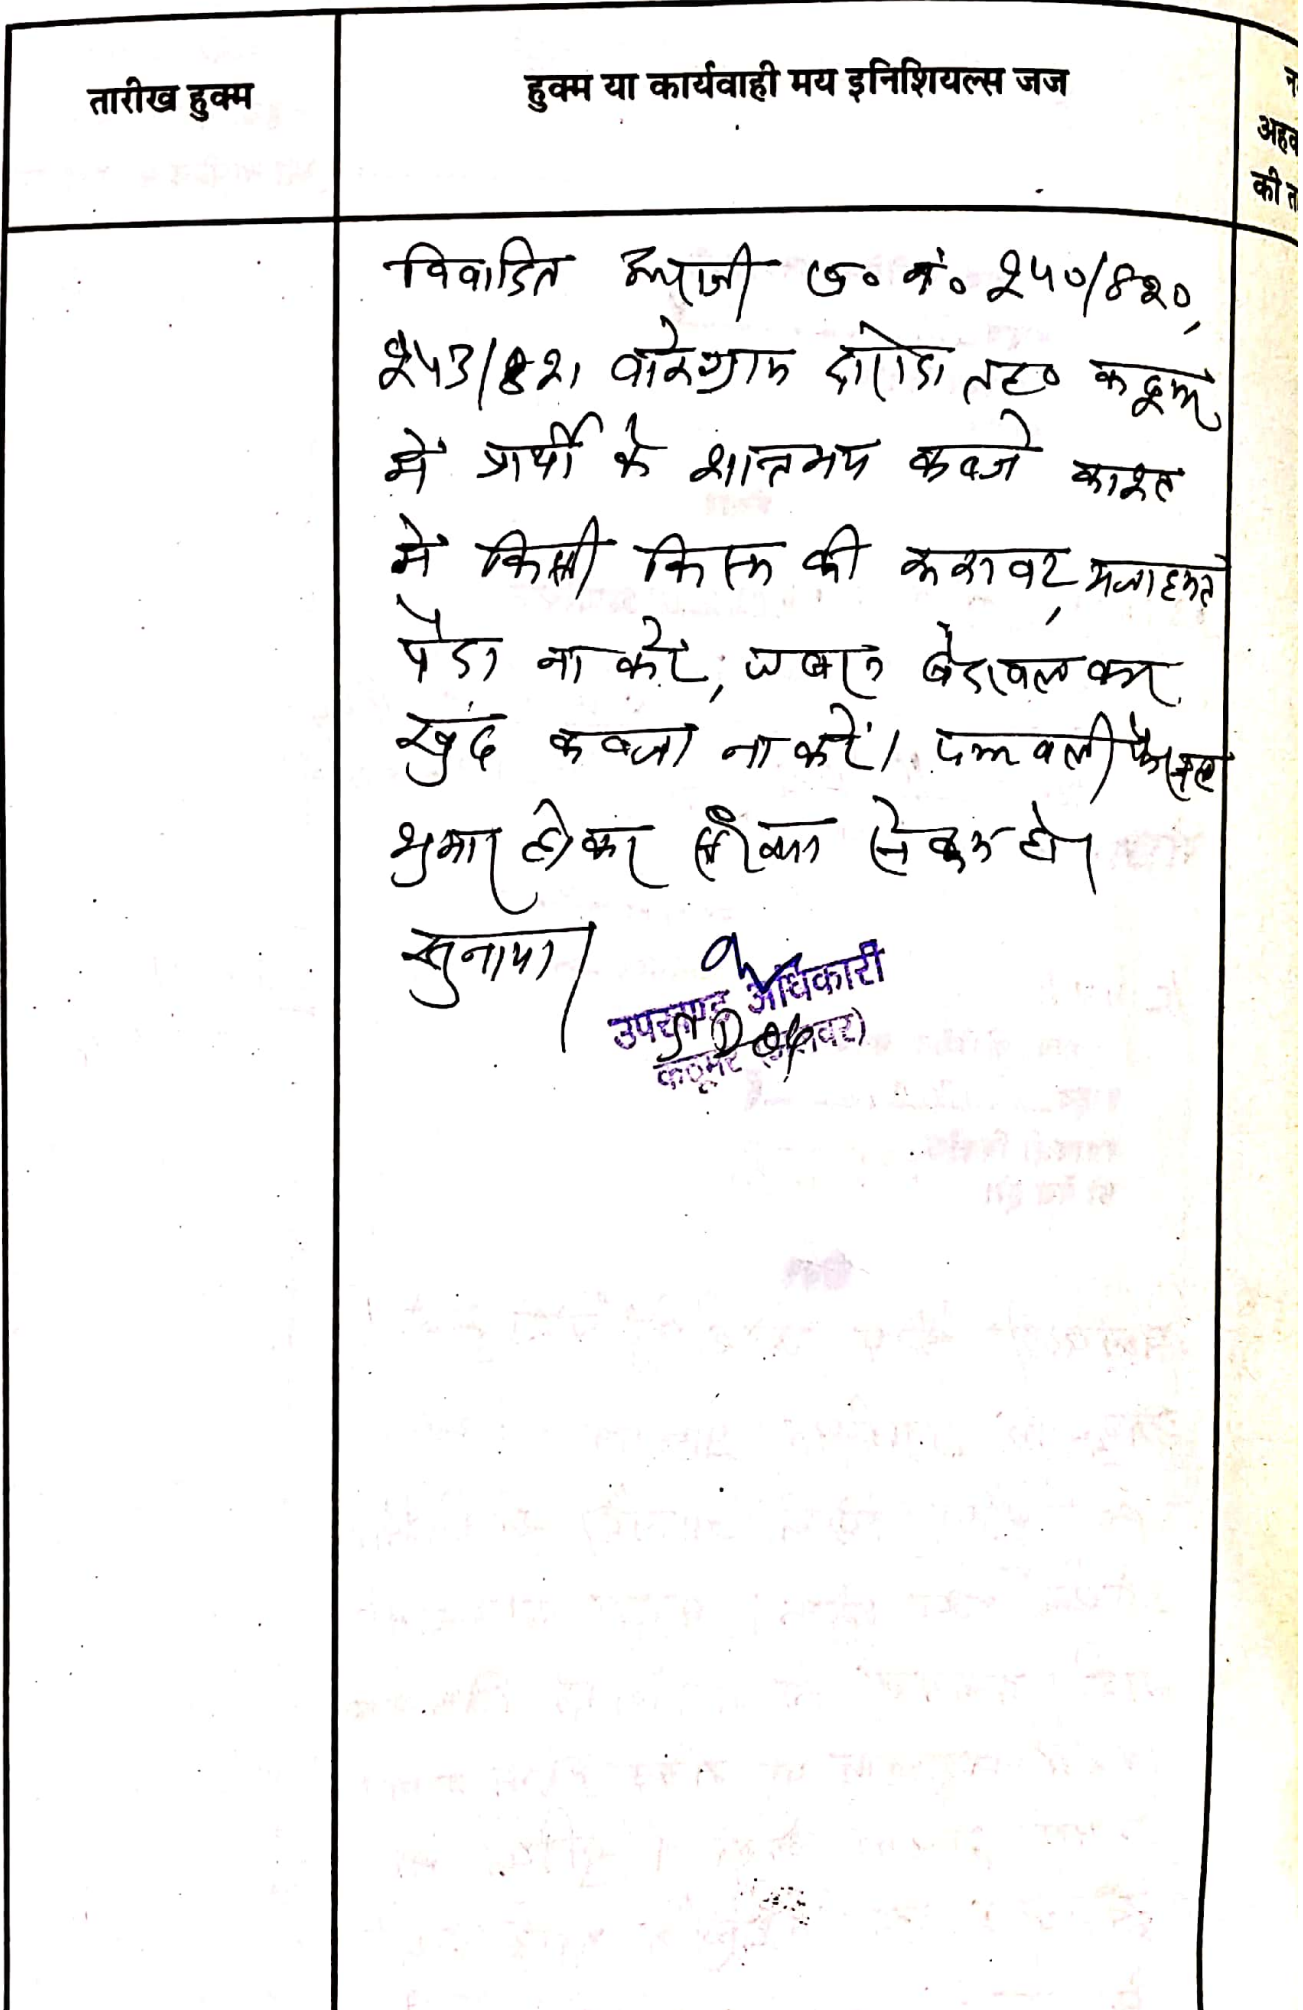 तारीख हुक्म
हुक्म या कार्यवाही मय इनिशियल्स जज
की
विवादित आराजी ख० नं० २५०/४२०,
२५३/४२१ वाके ग्राम दारोदा तह० कठूमर
में प्रार्थी के शान्तमय कब्जे काश्त
में किसी किस्म की रूकावट, मजाहमत
पैदा ना करे, जबरन बेदखल कर
खुद कब्जा ना करें। पत्रावली फैसल
शुमार होकर नम्बर से कम हो।
सुनाया।
उपखण्ड अधिकारी
कठूमर (अलवर)